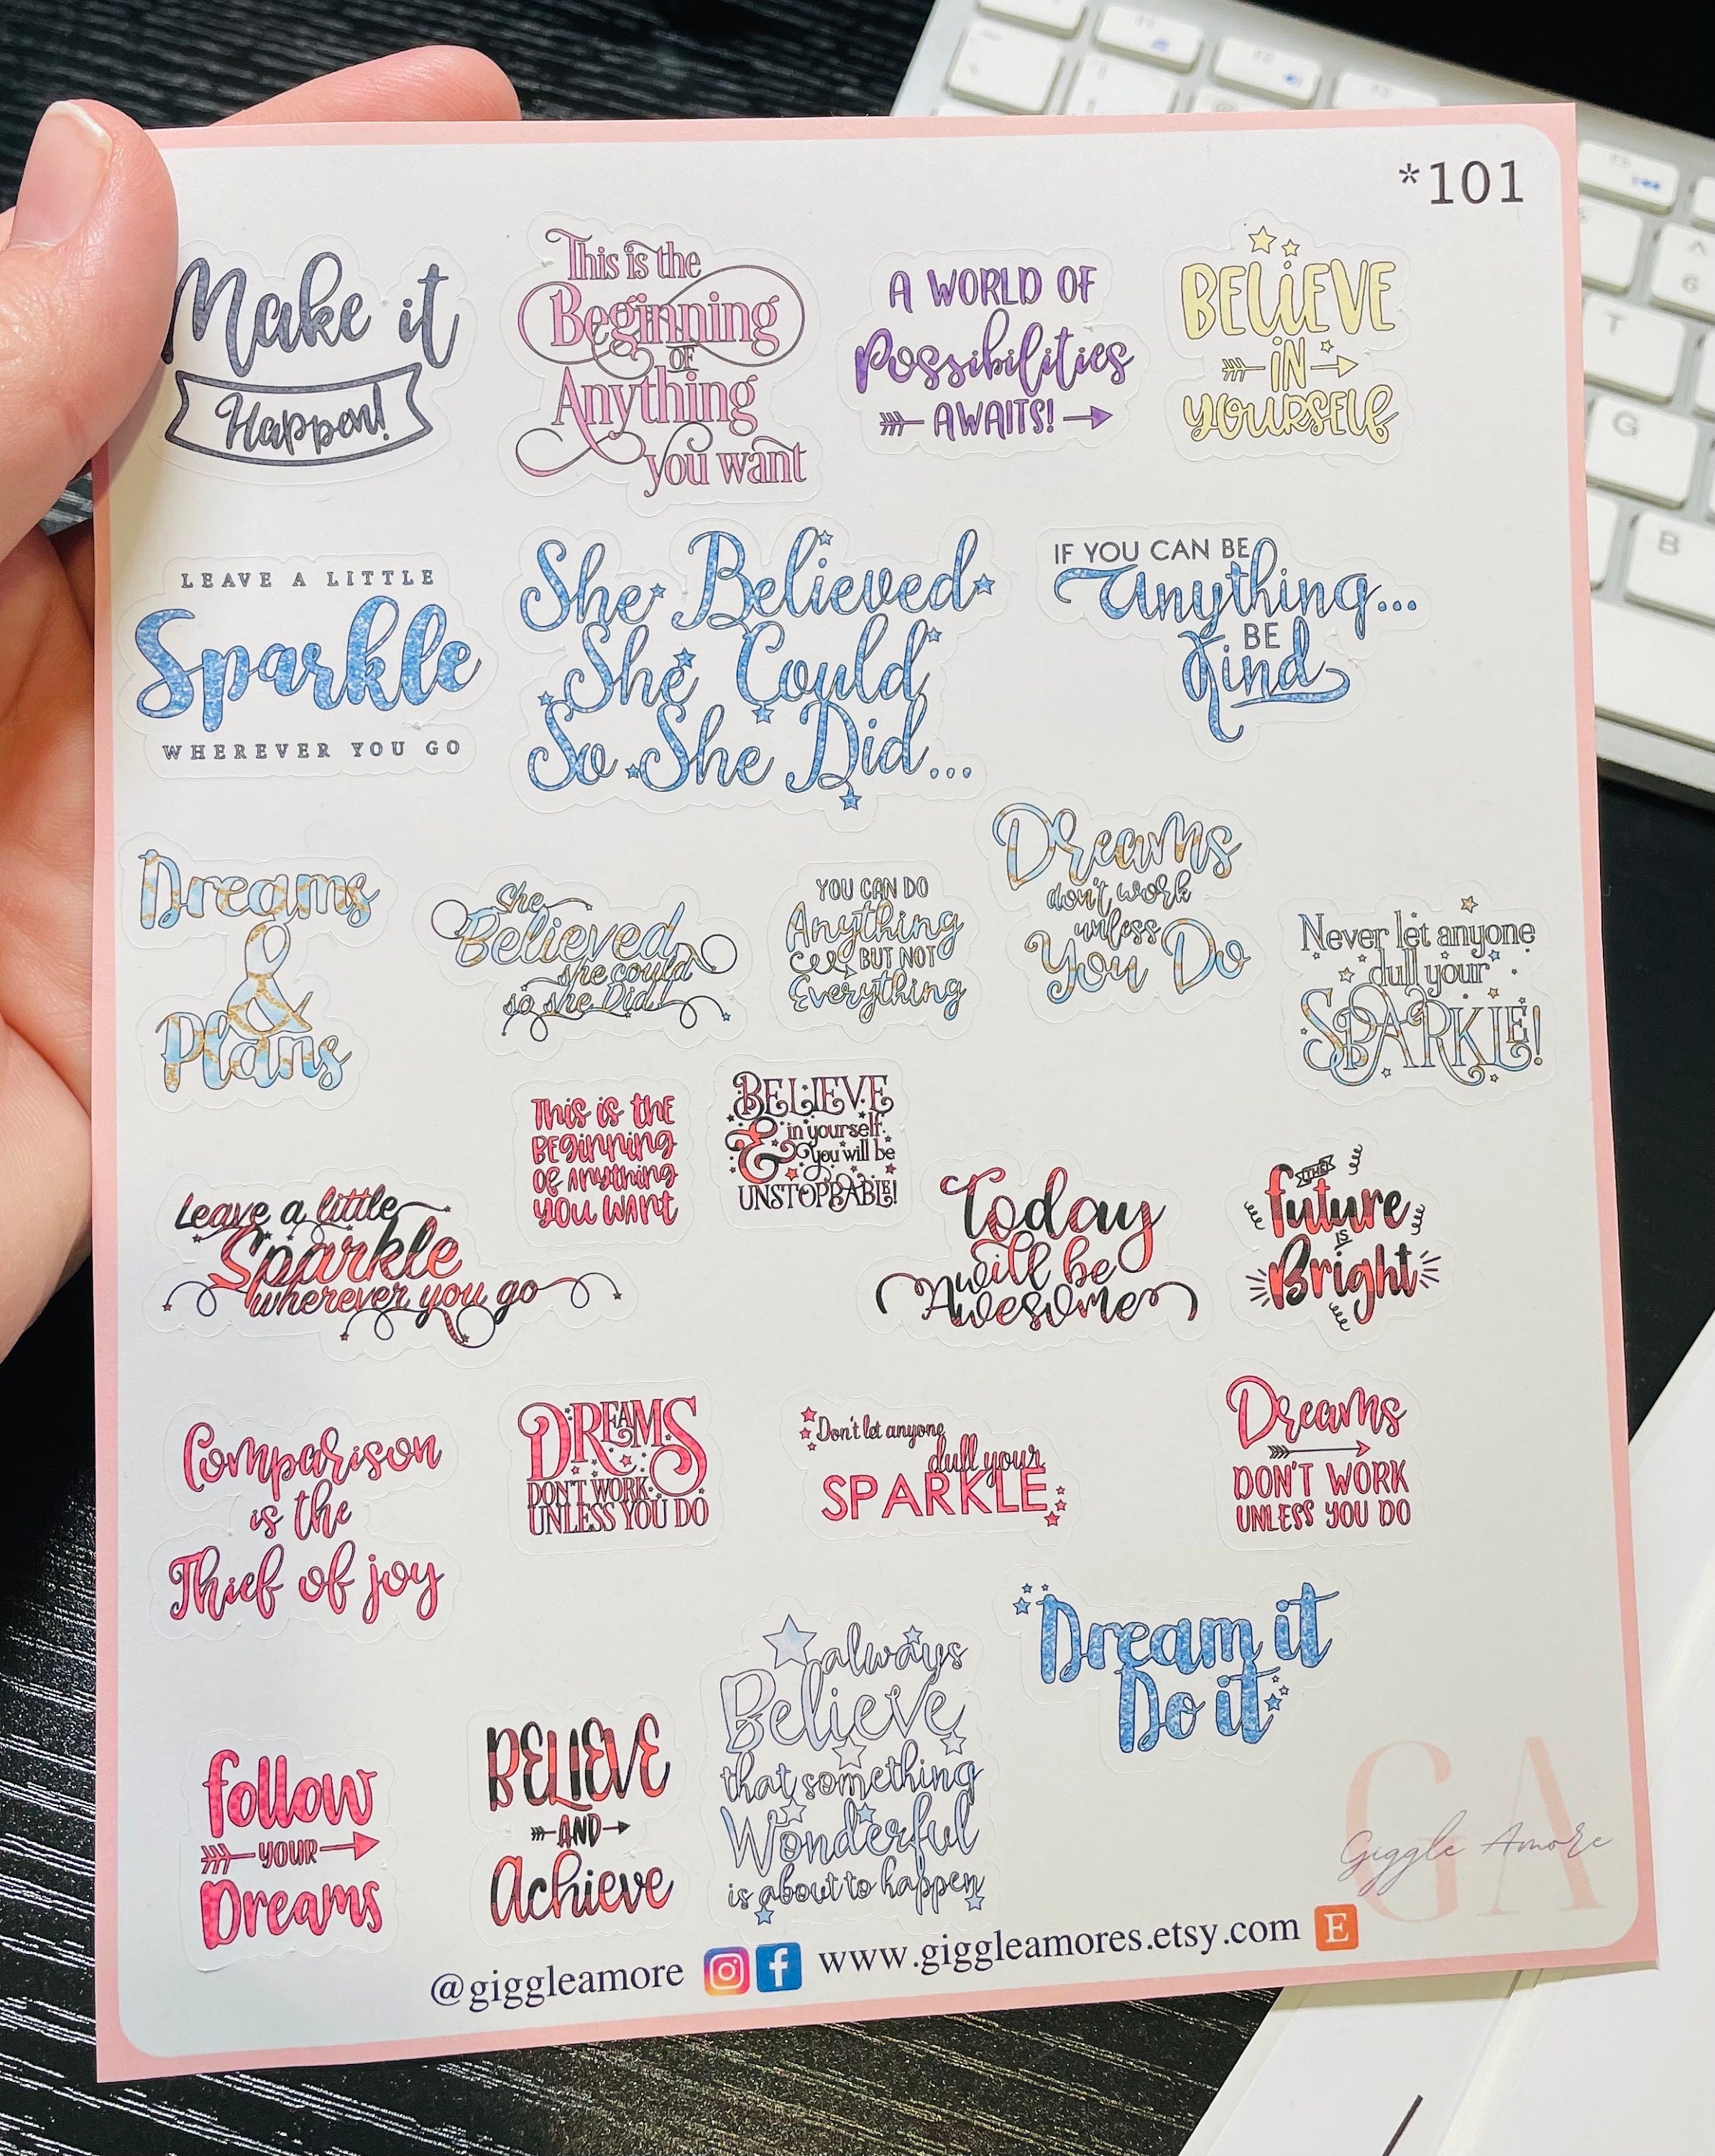 *101
Make it
Happen!
This is the
Beginning
OF
Anything
you want
A WORLD OF
Possibilities
AWAITS!
BELIEVE
IN
YOURSELF
LEAVE A LITTLE
Sparkle
WHEREVER YOU GO
She Believed
She Could
So She Did...
IF YOU CAN BE
Anything...
BE
Kind
Dreams
&
Plans
She
Believed
she could
so she Did!
YOU CAN DO
Anything
BUT NOT
Everything
Dreams
don't work
unless
You Do
Never let anyone
dull your
SPARKLE!
This is the
Beginning
of Anything
you want
BELIEVE
in yourself
& you will be
UNSTOPPABLE!
Leave a little
Sparkle
wherever you go
Today
will be
Awesome
THE
future
IS
Bright
Comparison
is the
Thief of joy
DREAMS
DON'T WORK
UNLESS YOU DO
Don't let anyone
dull your
SPARKLE
Dreams
DON'T WORK
UNLESS YOU DO
follow
YOUR
Dreams
BELIEVE
AND
Achieve
always
Believe
that something
Wonderful
is about to happen
Dream it
Do it
GA
Giggle Amore
@giggleamore f www.giggleamores.etsy.com E
T
G
B
6